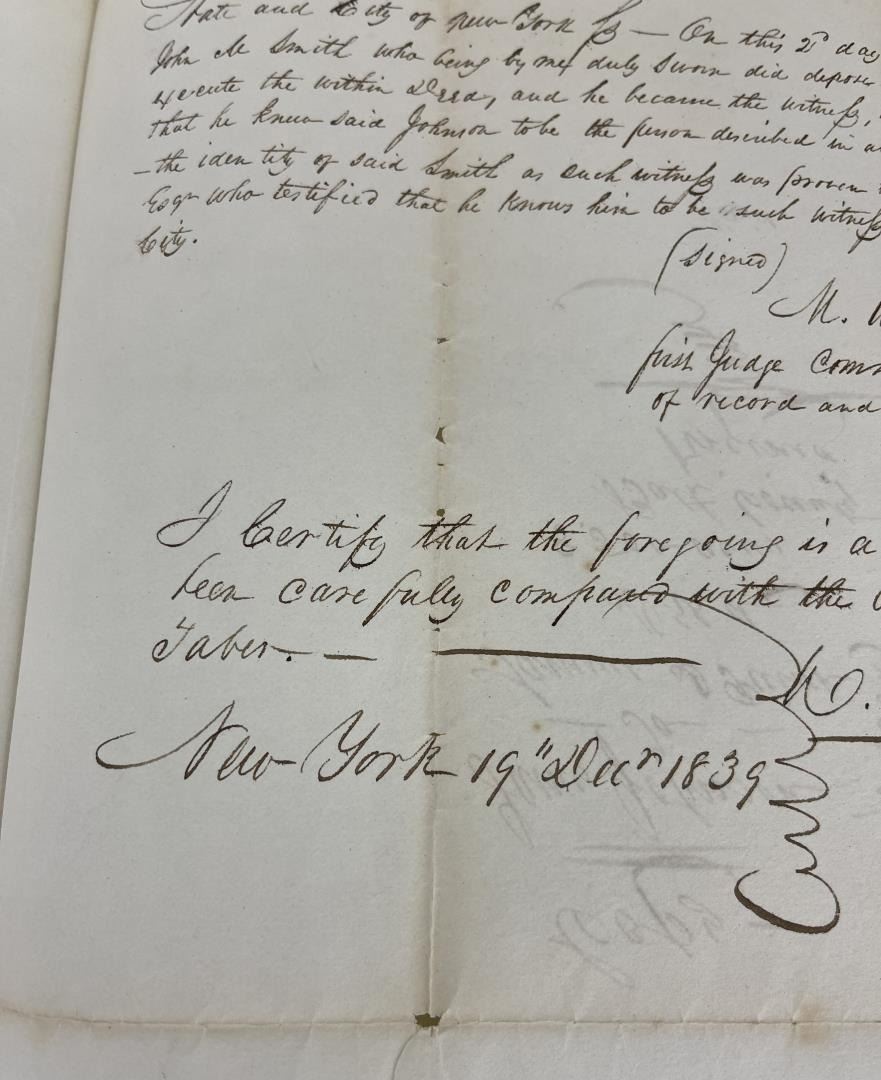 State and City of New York ss — On this 2d day
John M Smith who being by me duly sworn did depose
execute the within Deed, and he became the witness,
that he knew said Johnson to be the person described in a
— the identity of said Smith as such witness was proven
Esqr who testified that he knows him to be such witness
City.
(signed)
M.
first Judge Com
of record and
I Certify that the foregoing is a
been carefully compared with the
Taber. — —
New York 19" Decr 1839